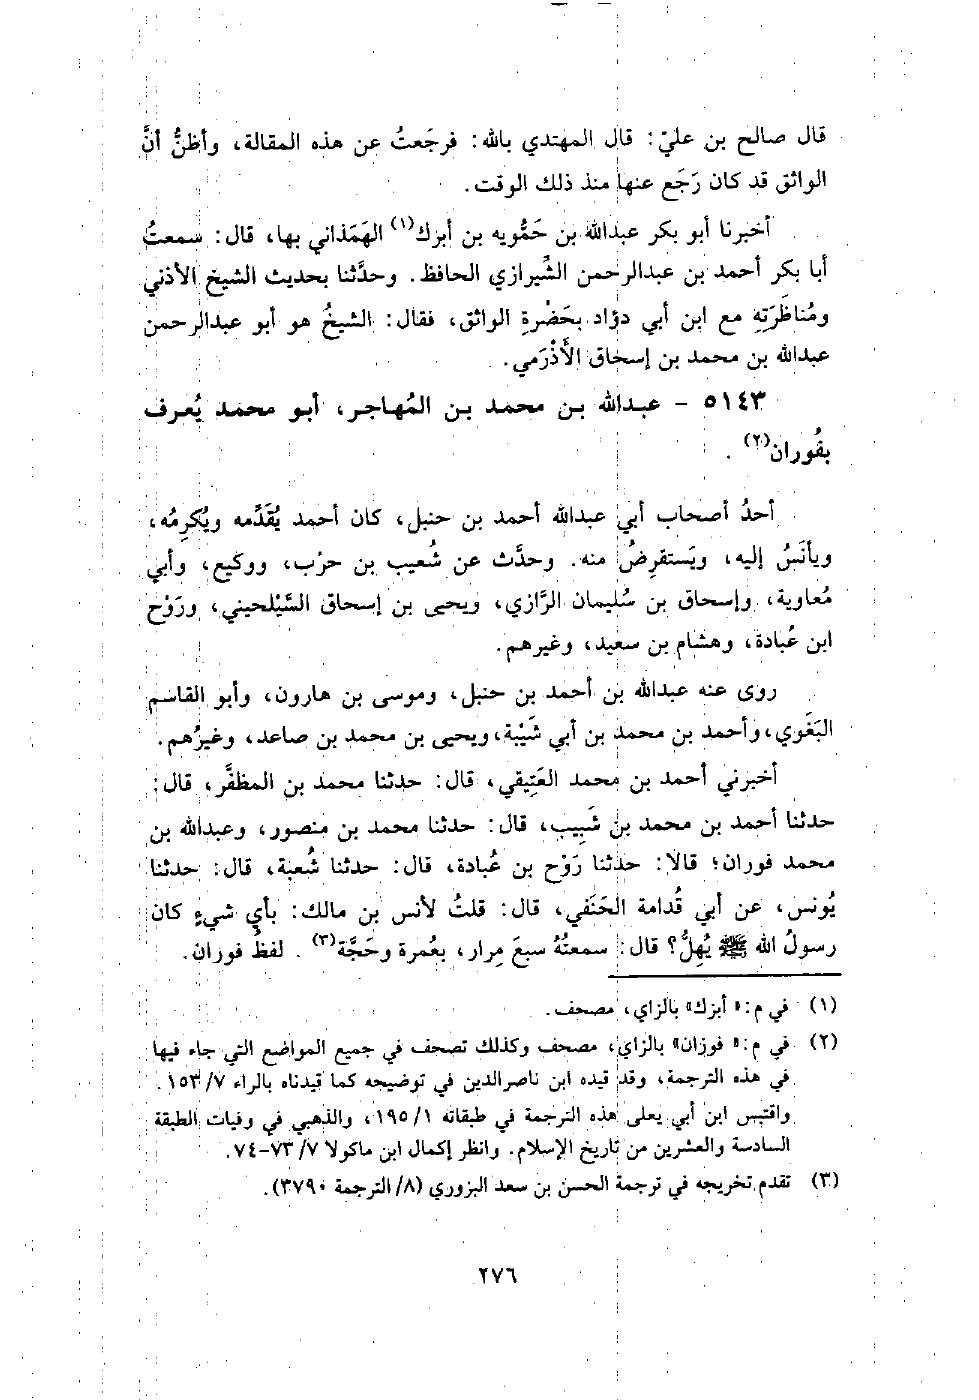 قال صالح بن عليّ: قال المهتدي بالله: فرجَعتُ عن هذه المقالة، وأظنُّ أنَّ
الواثق قد كان رَجَع عنها منذ ذلك الوقت.
أخبرنا أبو بكر عبدالله بن حَمُّويه بن أبزك(١) الهَمَذاني بها، قال: سمعتُ
أبا بكر أحمد بن عبدالرحمن الشِّيرازي الحافظ. وحدَّثنا بحديث الشيخ الأذني
ومُناظَرَتِهِ مع ابن أبي دؤاد بحَضْرةِ الواثق، فقال: الشيخُ هو أبو عبدالرحمن
عبدالله بن محمد بن إسحاق الأَذْرَمي.
٥١٤٣ - عبدالله بن محمد بن المُهاجر، أبو محمد يُعرف
بفُوران(٢).
أحدُ أصحاب أبي عبدالله أحمد بن حنبل، كان أحمد يُقَدِّمه ويُكرِمُه،
ويأنَسُ إليه، ويَستقرِضُ منه. وحدَّث عن شُعيب بن حرْب، ووكيع، وأبي
مُعاوية، وإسحاق بن سُليمان الرَّازي، ويحيى بن إسحاق السَّيْلحيني، ورَوْح
ابن عُبادة، وهشام بن سعيد، وغيرهم.
روى عنه عبدالله بن أحمد بن حنبل، وموسى بن هارون، وأبو القاسم
البَغَوي، وأحمد بن محمد بن أبي شَيْبة، ويحيى بن محمد بن صاعد، وغيرُهم.
أخبرني أحمد بن محمد العَتِيقي، قال: حدثنا محمد بن المظفَّر، قال:
حدثنا أحمد بن محمد بن شَبِيب، قال: حدثنا محمد بن منصور، وعبدالله بن
محمد فوران؛ قالا: حدثنا رَوْح بن عُبادة، قال: حدثنا شُعبة، قال: حدثنا
يُونس، عن أبي قُدامة الحَنَفي، قال: قلتُ لأنس بن مالك: بأي شيءٍ كان
رسولُ الله ﷺ يُهِلُّ؟ قال: سمعتُهُ سبعَ مِرار، بعُمرة وحَجَّة(٣). لفظُ فوران.
(١) في م: «أبزك» بالزاي، مصحف.
(٢) في م: «فوزان» بالزاي، مصحف وكذلك تصحف في جميع المواضع التي جاء فيها
في هذه الترجمة، وقد قيده ابن ناصرالدين في توضيحه كما قيدناه بالراء ٧/ ١٥٣.
واقتبس ابن أبي يعلى هذه الترجمة في طبقاته ١/ ١٩٥، والذهبي في وفيات الطبقة
السادسة والعشرين من تاريخ الإسلام. وانظر إكمال ابن ماكولا ٧/ ٧٣-٧٤.
(٣) تقدم تخريجه في ترجمة الحسن بن سعد البزوري (٨/ الترجمة ٣٧٩٠).
٢٧٦